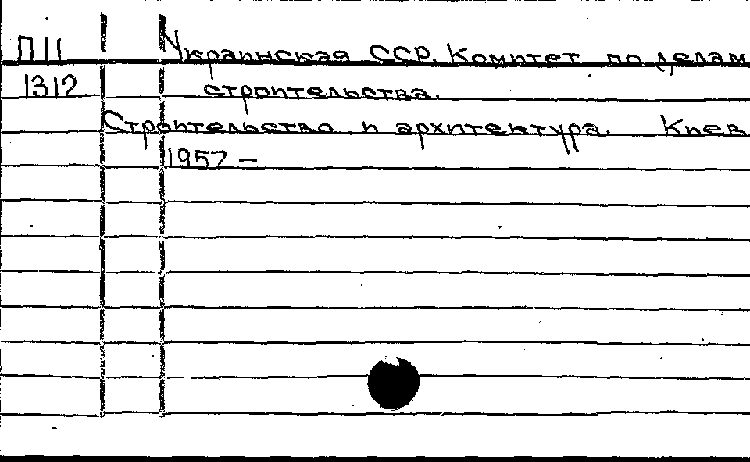 П11 Украинская ССР. Комитет по делам
1312 строительства.
Строительство и архитектура. Киев
1957 –